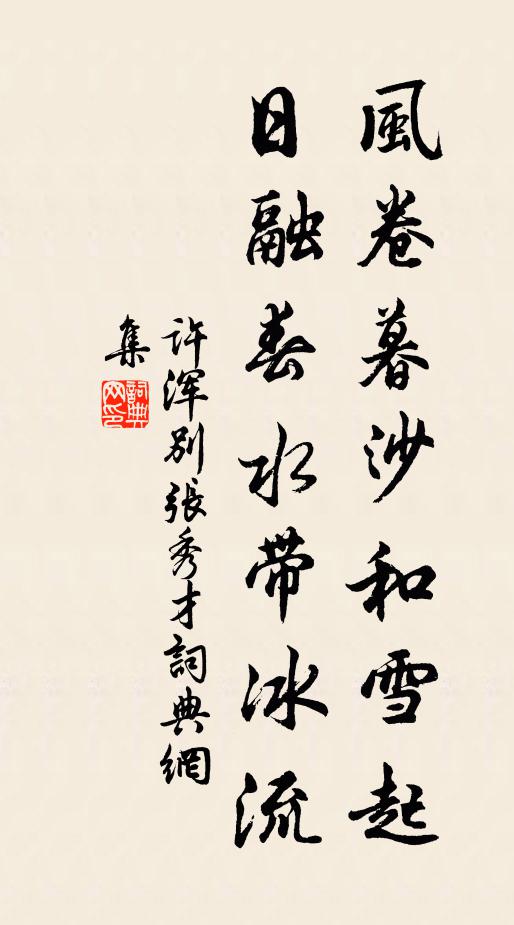 風卷暮沙和雪起
日融春水帶冰流
許渾別張秀才詞典網
集
詞典
网印